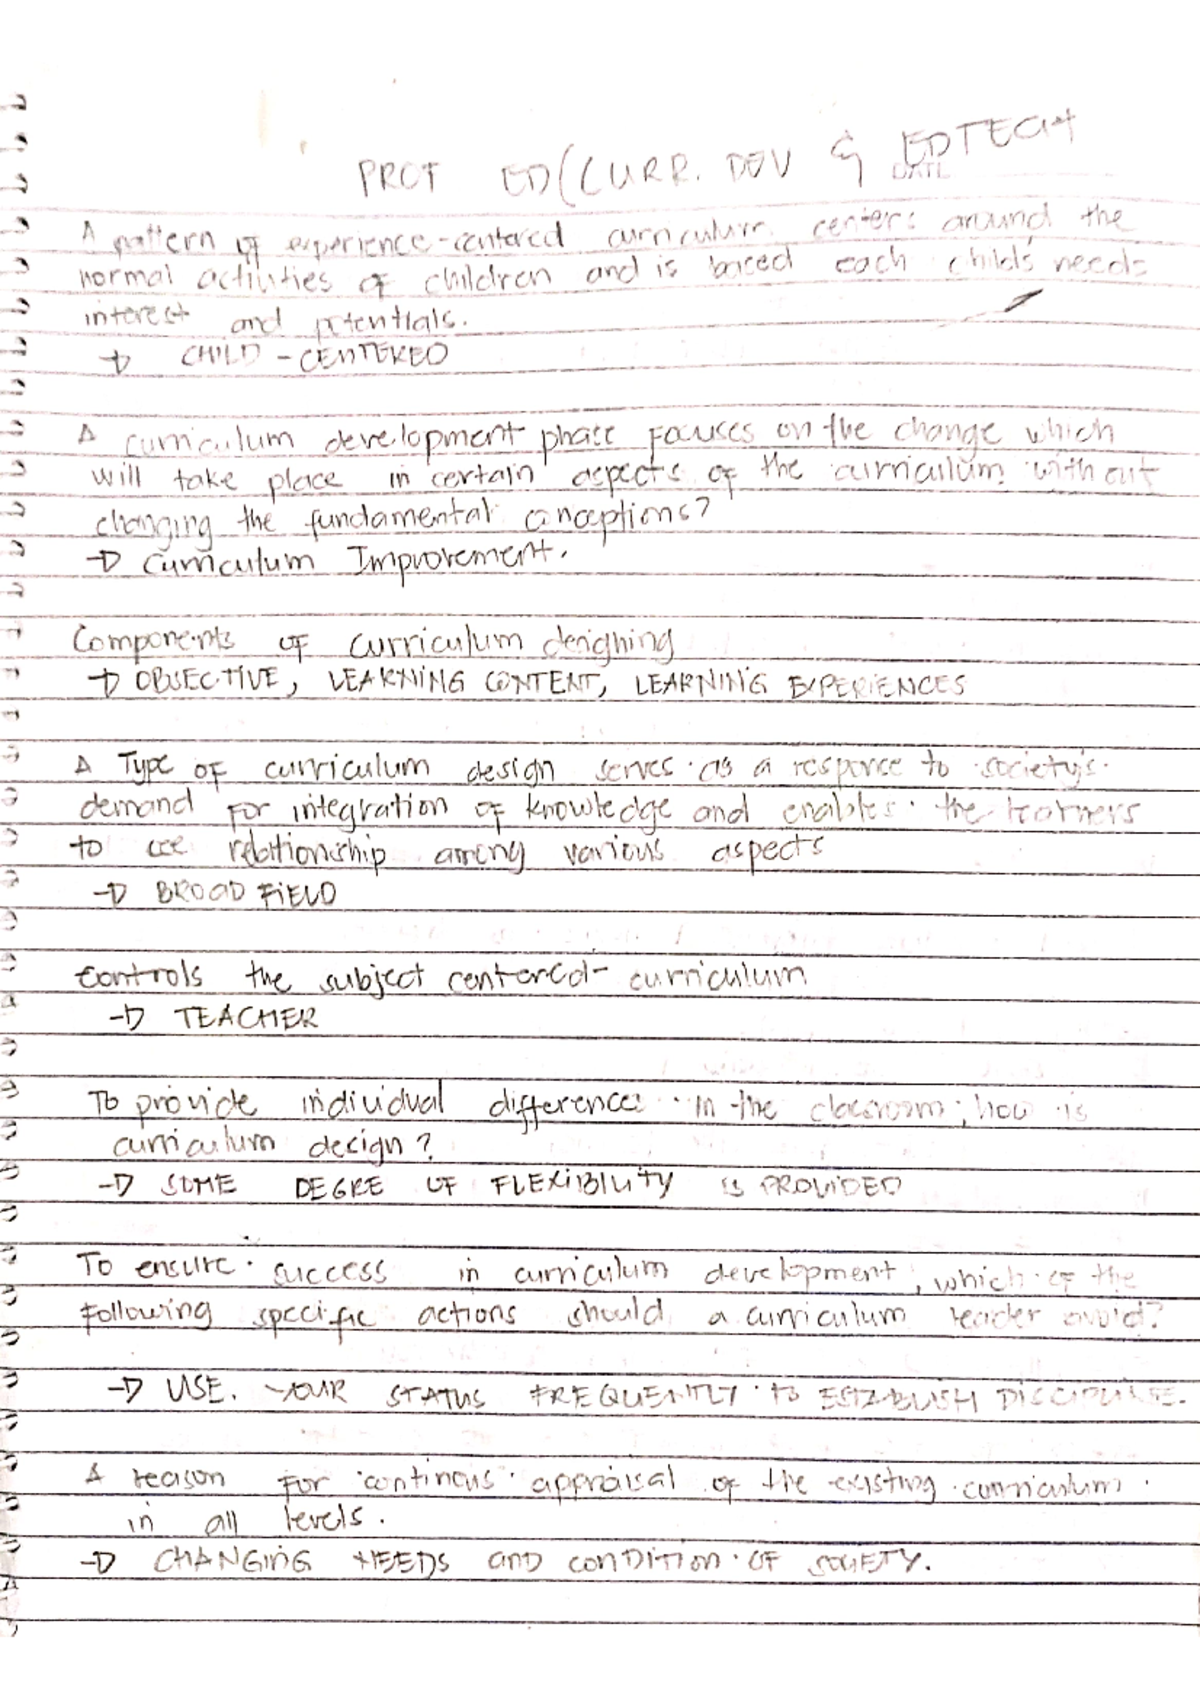 PROF ED (CURR. DEV & EDTECH
DATE
A pattern of experience-centered curriculum centers around the
normal activities of children and is based each child's needs
interest and potentials.
→ CHILD - CENTERED
A curriculum development phase focuses on the change which
will take place in certain aspects of the curriculum without
changing the fundamental conceptions?
→ Curriculum Improvement.
Components of curriculum designing
→ OBJECTIVE, LEARNING CONTENT, LEARNING EXPERIENCES
A Type of curriculum design serves as a response to society's
demand for integration of knowledge and enables the learners
to see relationship among various aspects
→ BROAD FIELD
Controls the subject centered- curriculum
→ TEACHER
To provide individual differences in the classroom, how is
curriculum design?
→ SOME DEGRE OF FLEXIBILITY IS PROVIDED
To ensure success in curriculum development, which of the
following specific actions should a curriculum leader avoid?
→ USE YOUR STATUS FREQUENTLY TO ESTABLISH DISCIPLINE.
A reason for continous appraisal of the existing curriculum
in all levels.
→ CHANGING NEEDS and CONDITION OF SOCIETY.